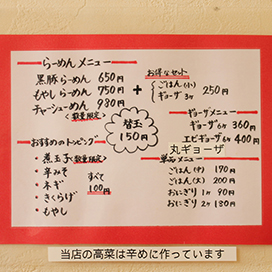 らーめんメニュー
黒豚らーめん 650円
もやしらーめん 750円
チャーシューめん 980円
(数量限定)
+
お得なセット
ごはん(小)
ギョーザ 3ヶ
250円
替玉
150円
ギョーザメニュー
ギョーザ6ヶ 360円
エビギョーザ6ヶ 400円
丸ギョーザ
おすすめのトッピング
・煮玉子(数量限定)
・辛みそ
・ネギ
・きくらげ
・もやし
すべて
100円
単品メニュー
ごはん(中) 170円
ごはん(大) 200円
おにぎり 1ヶ 90円
おにぎり 2ヶ 180円
当店の高菜は辛めに作っています